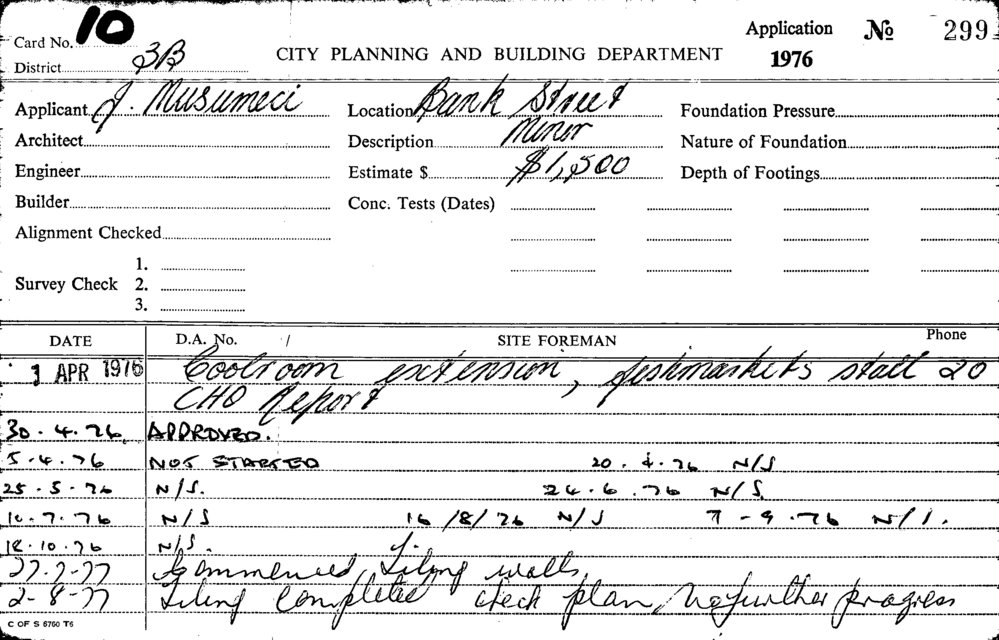 Card No. 10
Application No 299
District 3B
CITY PLANNING AND BUILDING DEPARTMENT
1976
Applicant J. Musumeci
Location Bank Street
Foundation Pressure
Architect
Description Minor
Nature of Foundation
Engineer
Estimate $ $1,500
Depth of Footings
Builder
Conc. Tests (Dates)
Alignment Checked
Survey Check
1.
2.
3.
DATE
D.A. No. /
SITE FOREMAN
Phone
1 APR 1976 Coolroom extension, fishmarkets stall 20
CHO Report
30.4.76 APPROVED.
5.4.76 NOT STARTED 20.4.76 N/S
25.5.76 N/S. 24.6.76 N/S.
7.76 N/S 16/8/76 N/S 7-9.76 N/S.
10.76 N/S.
77 Commenced Tiling walls
2-8-77 Tiling completed check plan, No further progress
C OF S 6760 T6